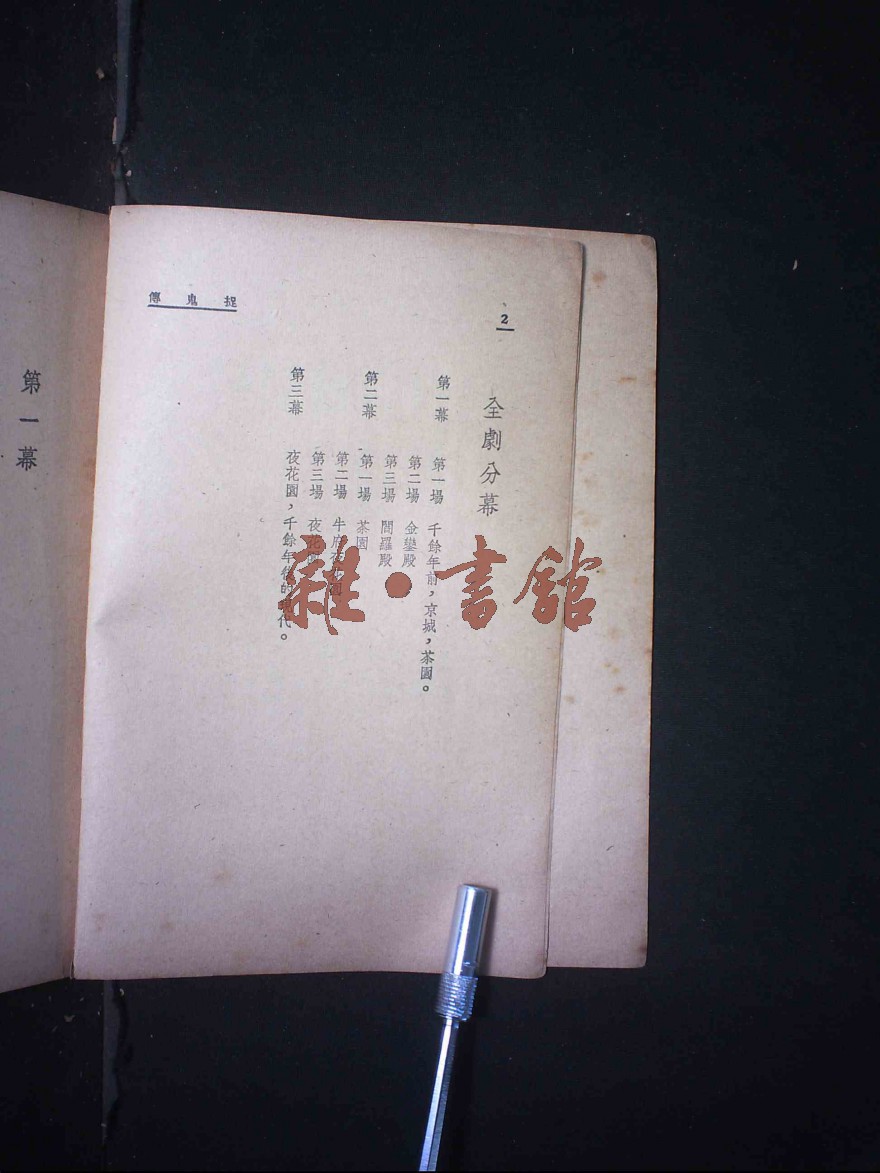 捉鬼傳
2
全劇分幕
第一幕 第一場 千餘年前，京城，茶園。
第二場 金鑾殿
第三場 閻羅殿
第二幕 第一場 茶園
第二場 牛府花園
第三場 夜花園
第三幕 夜花園，千餘年後的現代。
第一幕
雜·書館